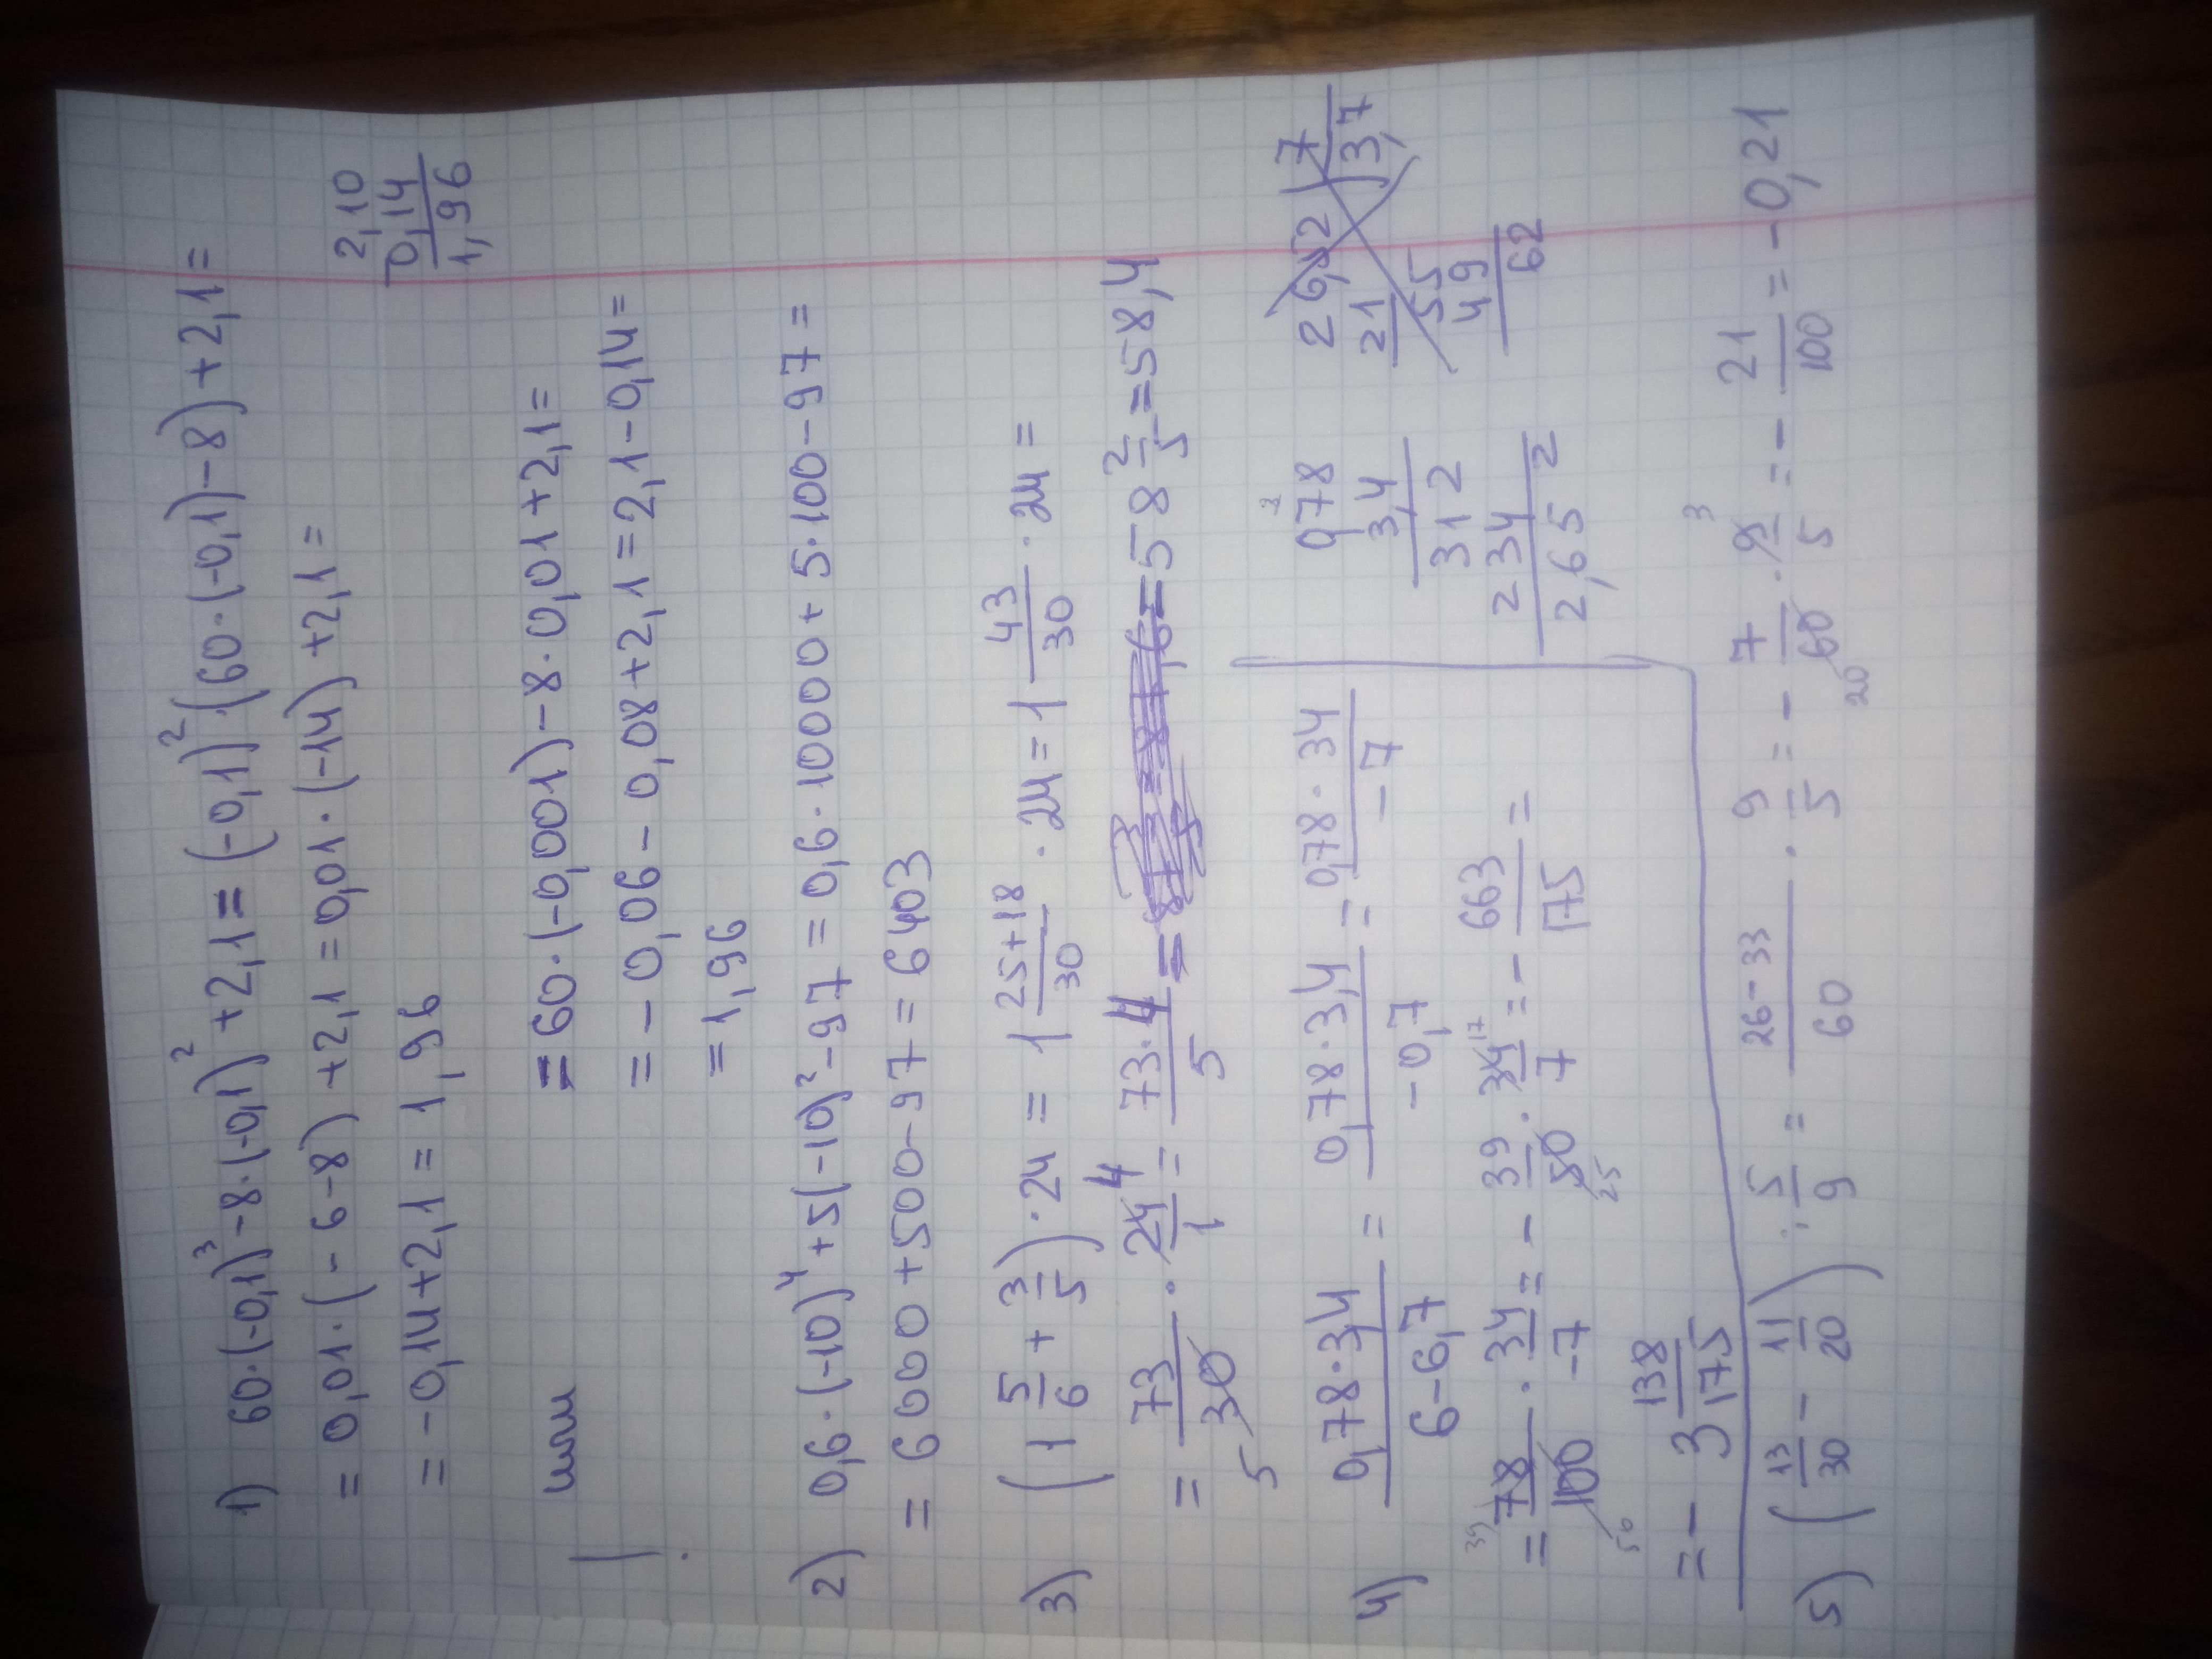 1) 60·(-0,1)³-8·(-0,1)²+2,1=(-0,1)²·(60·(-0,1)-8)+2,1=
=0,01·(-6-8)+2,1=0,01·(-14)+2,1=
=-0,14+2,1=1,96
2,10
0,14
1,96
или =60·(-0,001)-8·0,01+2,1=
=-0,06-0,08+2,1=2,1-0,14=
=1,96
2) 0,6·(-10)⁴+5(-10)²-97=0,6·10000+5·100-97=
=6000+500-97=6403
3) (1 5/6 + 3/5)·24 = 1 (25+18)/30 · 24 = 1 43/30 · 24 =
= 73/30 · 24/1 = (73·4)/5 = 58 2/5 = 58,4
5 4
4) (0,78·3,4)/(6-6,7) = (0,78·3,4)/(-0,7) = (0,78·34)/(-7)
= 78/100 · 34/-7 = - 39/50 · 34/7 = - 663/175 =
39 50 25 17
= -3 138/175
3
0,78
3,4
312
234
2,652
26,52 | 7
21 | 3,7
55
49
62
5) (13/30 - 11/20) : 5/9 = (26-33)/60 · 9/5 = - 7/60 · 9/5 = - 21/100 = -0,21
20 3